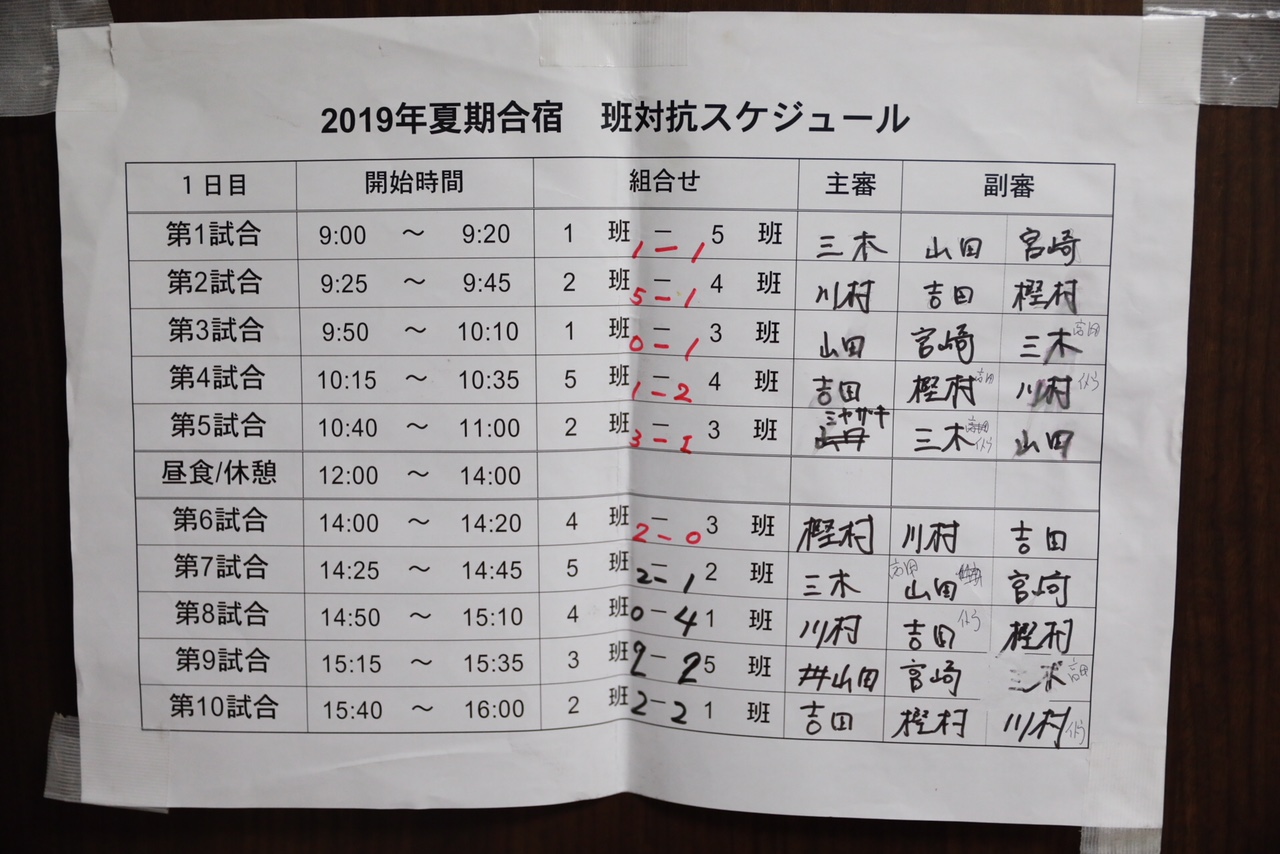 2019年夏期合宿　班対抗スケジュール
1日目 開始時間 組合せ 主審 副審
第1試合 9:00 ～ 9:20 1 班 － 5 班 1－1 三木 山田 宮崎
第2試合 9:25 ～ 9:45 2 班 － 4 班 5－1 川村 吉田 樫村
第3試合 9:50 ～ 10:10 1 班 － 3 班 0－1 山田 宮崎 三木 吉田
第4試合 10:15 ～ 10:35 5 班 － 4 班 1－2 吉田 樫村 吉田 川村
第5試合 10:40 ～ 11:00 2 班 － 3 班 3－1 ミヤザキ 三木 山田
昼食/休憩 12:00 ～ 14:00
第6試合 14:00 ～ 14:20 4 班 － 3 班 2－0 樫村 川村 吉田
第7試合 14:25 ～ 14:45 5 班 － 2 班 2－1 三木 吉田 山田 宮崎
第8試合 14:50 ～ 15:10 4 班 － 1 班 0－4 川村 吉田 樫村
第9試合 15:15 ～ 15:35 3 班 － 5 班 2－2 山田 宮崎 三木 吉田
第10試合 15:40 ～ 16:00 2 班 － 1 班 2－2 吉田 樫村 川村